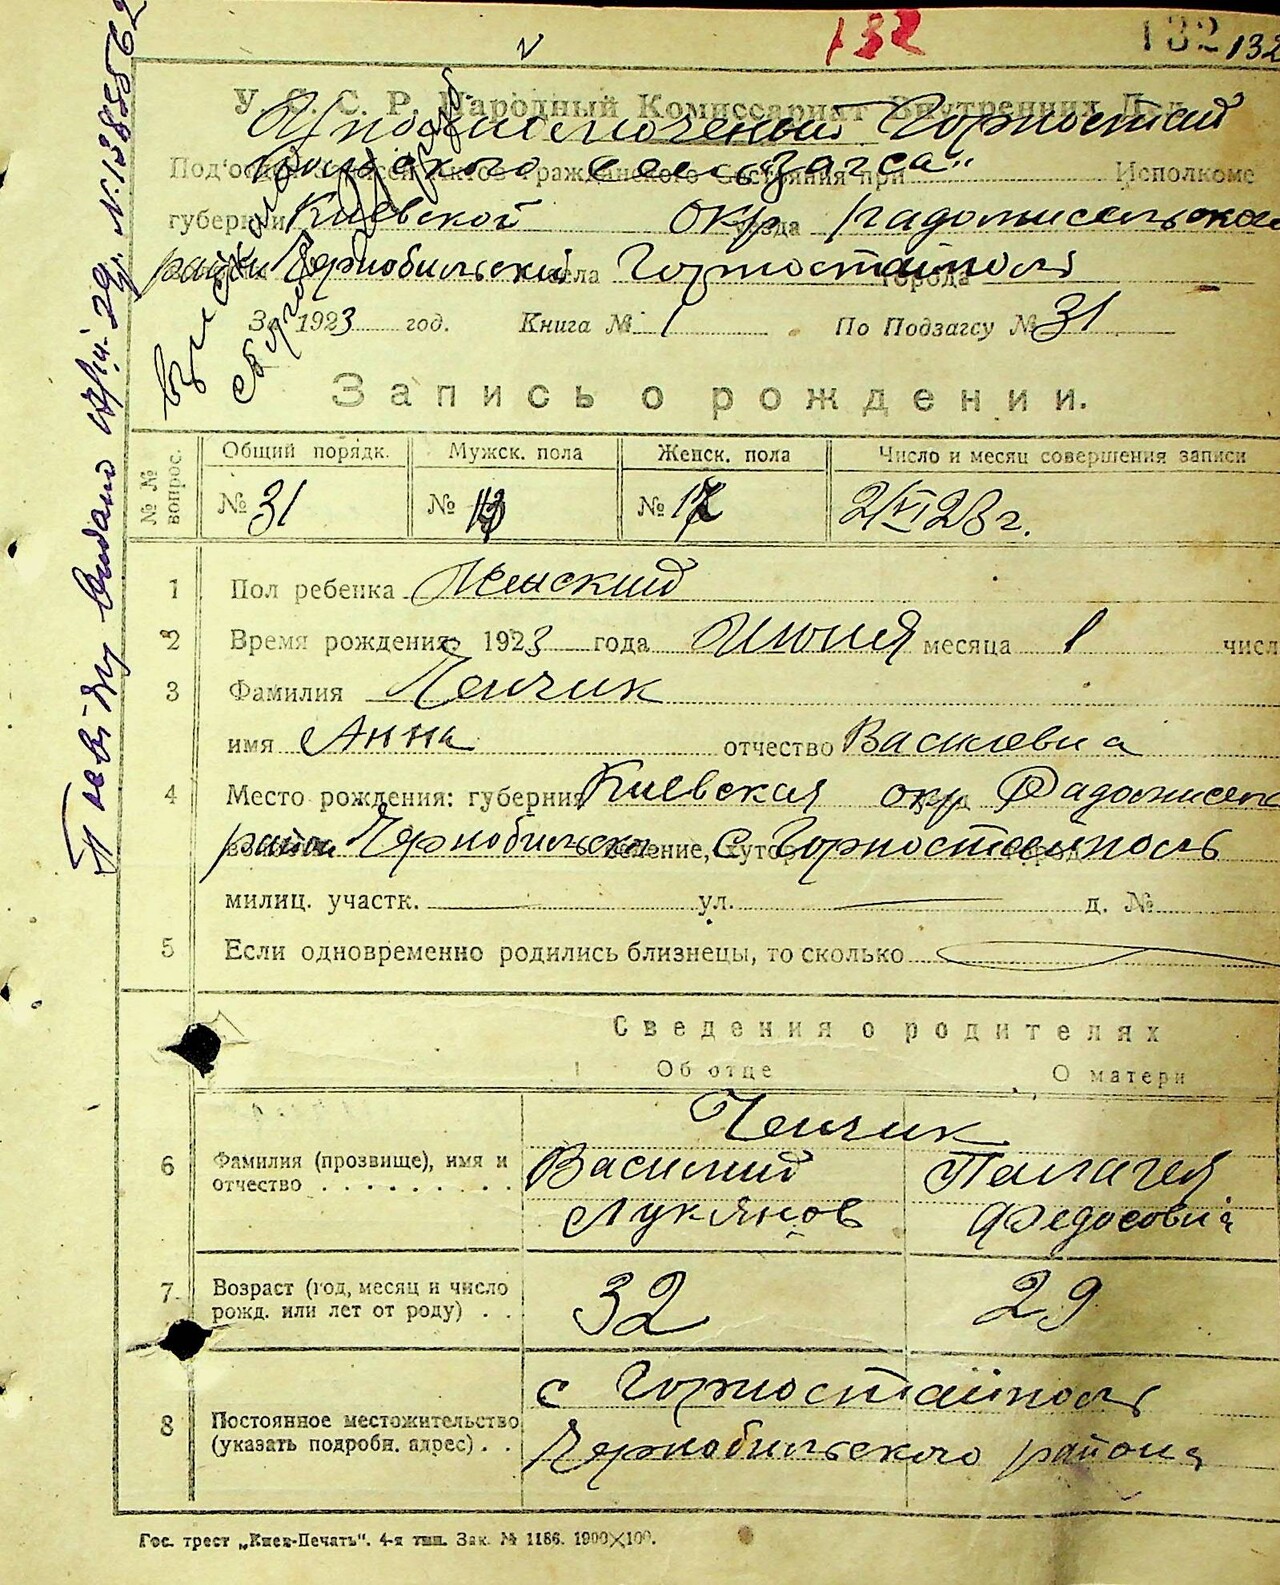 132 132 132
У. С. С. Р. Народный Комиссариат Внутренних Дел
Уполномоченый Горностай
польского сельзагса"
Под'отдел Записей Актов Гражданского Состояния при Исполкоме
губернии Киевской окр уезда Радомисельской
район Чернобильский села Горностайполь города
За 1923 год. Книга № 1 По Подзагсу № 31
Запись о рождении.
№ № вопрос.
Общий порядк. Мужск. пола Женск. пола Число и месяц совершения записи
№ 31 № № 17 2/VI 23 г.
1 Пол ребенка Женский
2 Время рождения: 1923 года Июня месяца 1 числ
3 Фамилия Ченчик
имя Анна отчество Василевна
4 Место рождения: губерния Киевская окр Радомисел
район Чернобильско селение, хутор с Горностайполь
милиц. участк. ул. д. №
5 Если одновременно родились близнецы, то сколько
Сведения о родителях
Об отце О матери
Ченчик
6 Фамилия (прозвище), имя и отчество
Василий Пелагея
Лукянов Федосовна
7 Возраст (год, месяц и число рожд. или лет от роду) 32 29
8 Постоянное местожительство (указать подробн. адрес)
с Горностайполь
Чернобильского района
Гос. трест „Киев-Печать". 4-я тип. Зак. № 1186. 1900×100.
видано 29 р. N. 138856